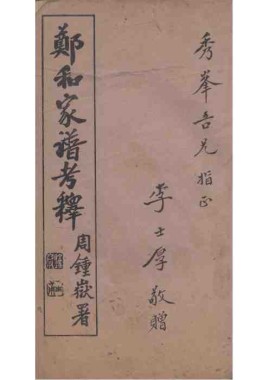 秀峯吾兄指正
李士厚敬贈
鄭和家譜考釋
周鍾嶽署